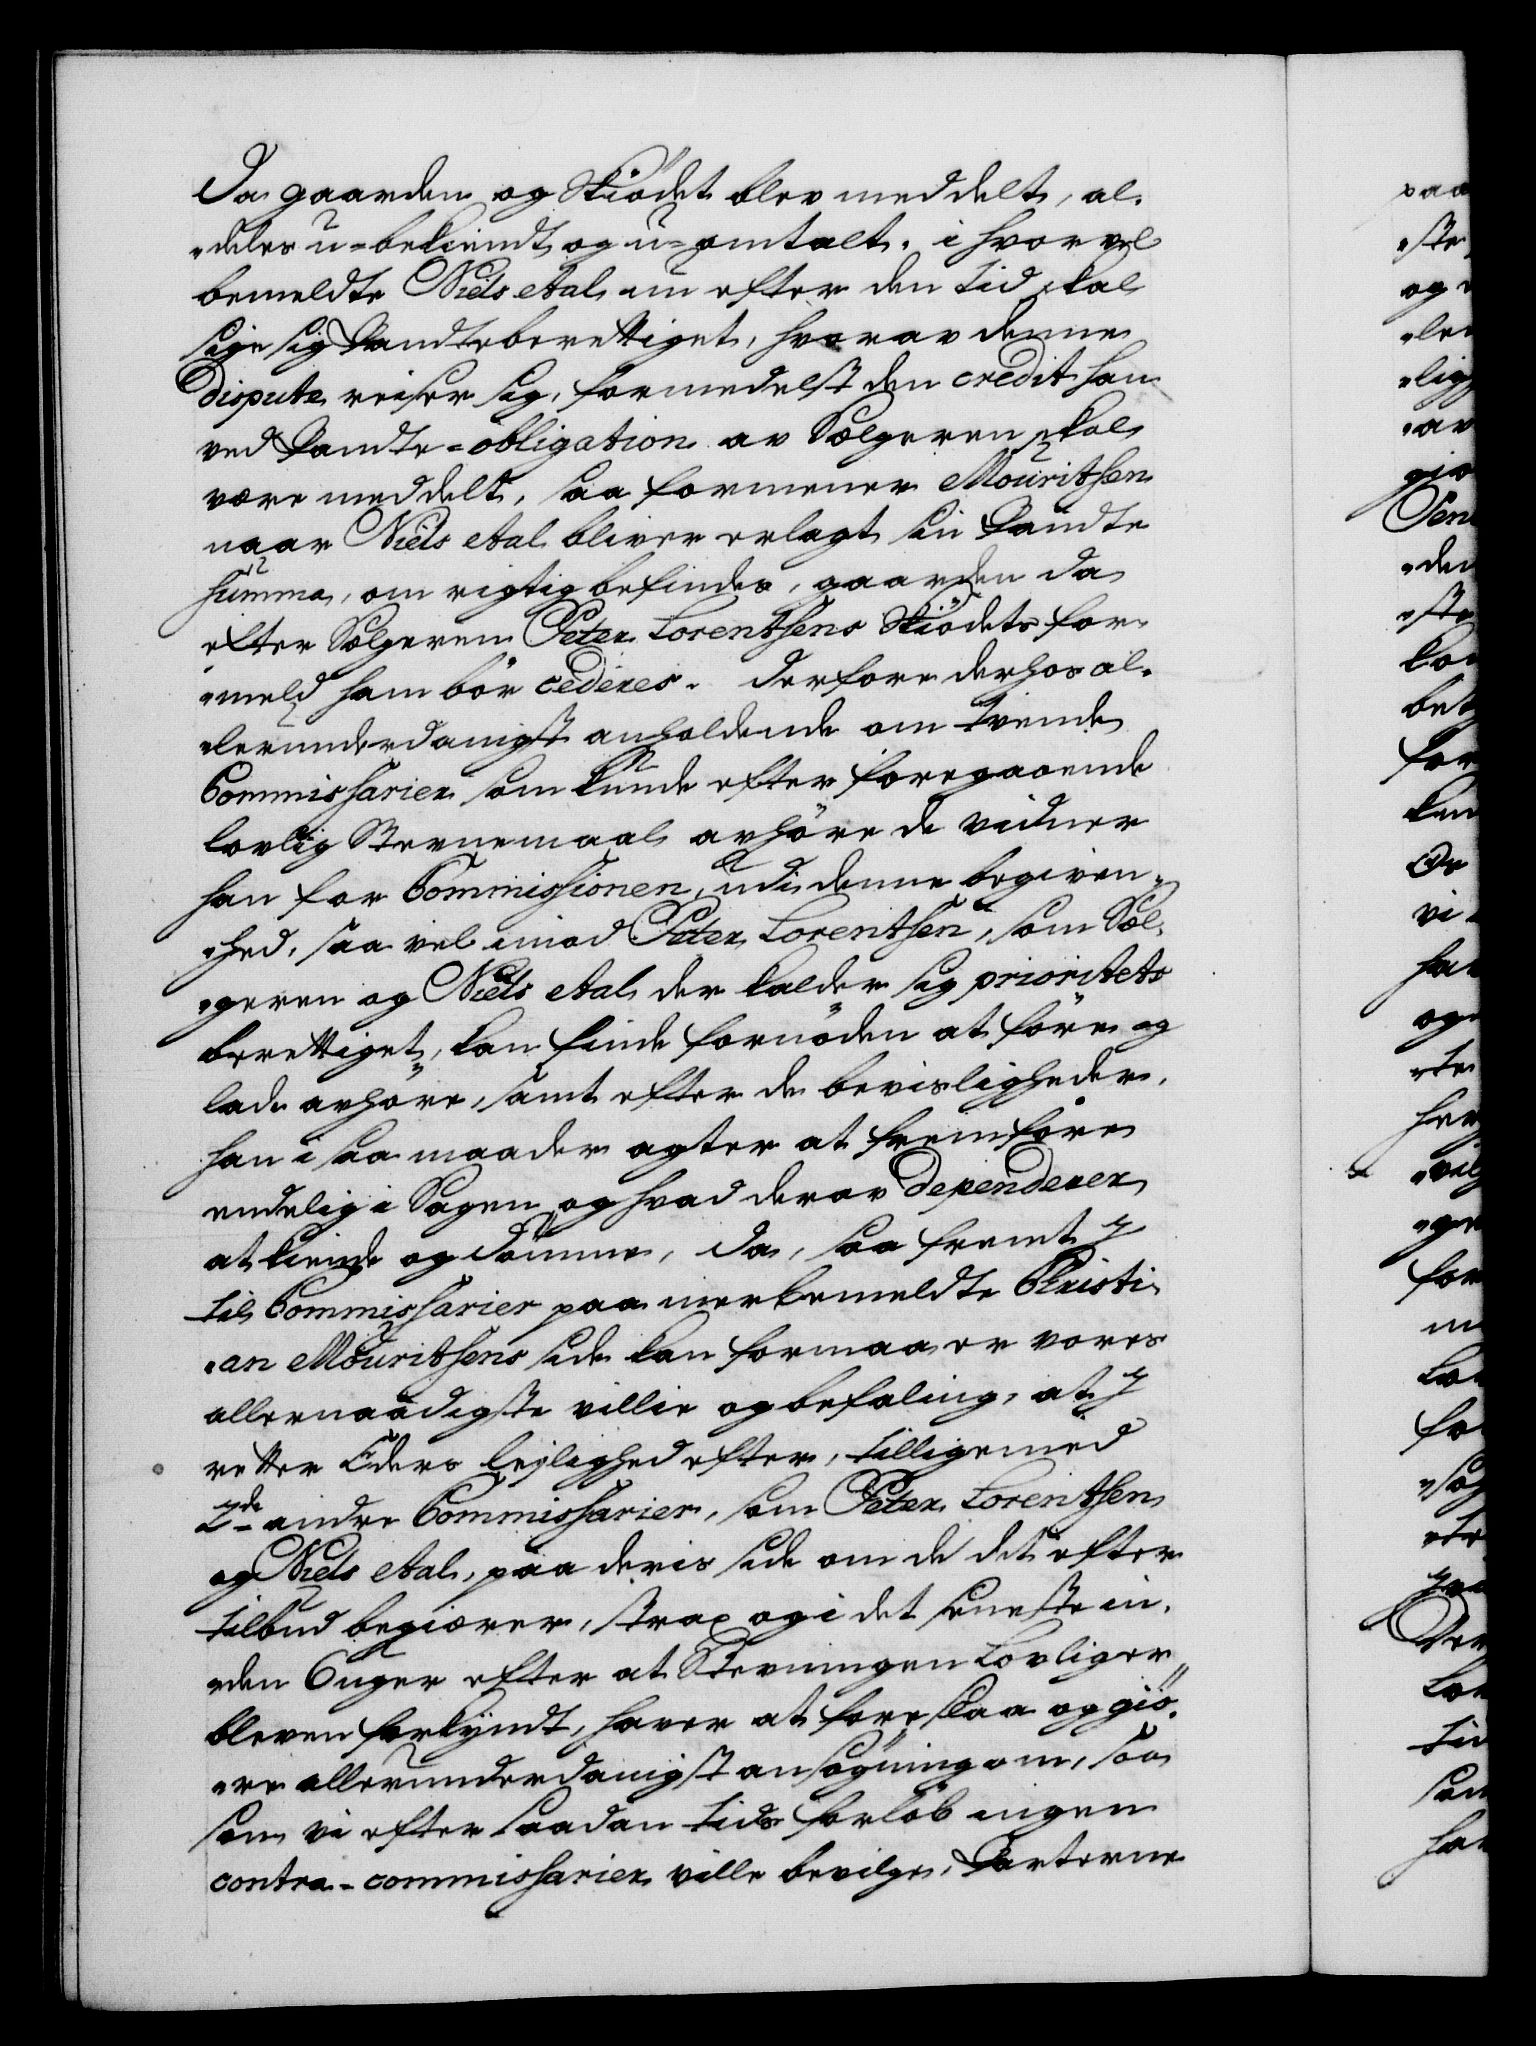 Da gaarden og Skiödet blev meddelt, al-
„deles u-bekiendt og u-omtalt. i hvorvel
bemeldte Niels Aal nu efter den tid skal
sige sig Pandteberettiget, hvorav denne
dispute reiser sig, formedelst den credit han
ved Pandte-obligation av Sælgeren skal
være meddelt, saa formener Mouritsen
naar Niels Aal bliver erlagt sin Pandte
summa, om rigtig befindes, gaarden da
efter Sælgeren Peter Lorentsens Skiödets for-
„meld ham bör cederes. derfore derhos al-
„lerunderdanigst anholdende om tvende
Commissarier som kunde efter foregaaende
lovlig Stevnemaal avhöre de vidner
han for Commissionen, udi denne begiven-
„hed, saa vel imod Peter Lorentsen, som Sæl-
„geren og Niels Aal der kalder sig prioritets
berettiget, kan finde fornöden at före og
lade avhöre, samt efter de bevisligheder,
han i saa maader agter at fremföre
endelig i Sagen og hvad derav dependerer
at kiende og dömme, da, saa fremt I
til Commissarier paa merbemeldte Christi-
„an Mouritsens side kan formaaes er vores
allernaadigste villie og befaling, at I
retter Eders lejlighed efter, tilligemed
2de andre Commissarier, som Peter Lorentsen
og Niels Aal, paa deris side om de det efter
tilbud begiærer, strax og i det seneste in-
„den 6 uger efter at Stevningen Lovlig er
bleven forkyndt, haver at foreslaa og giö-
„re allerunderdanigst ansögning om, saa
som vi efter saadan tids forlöb ingen
contra-commissarier ville bevilge, Parterne